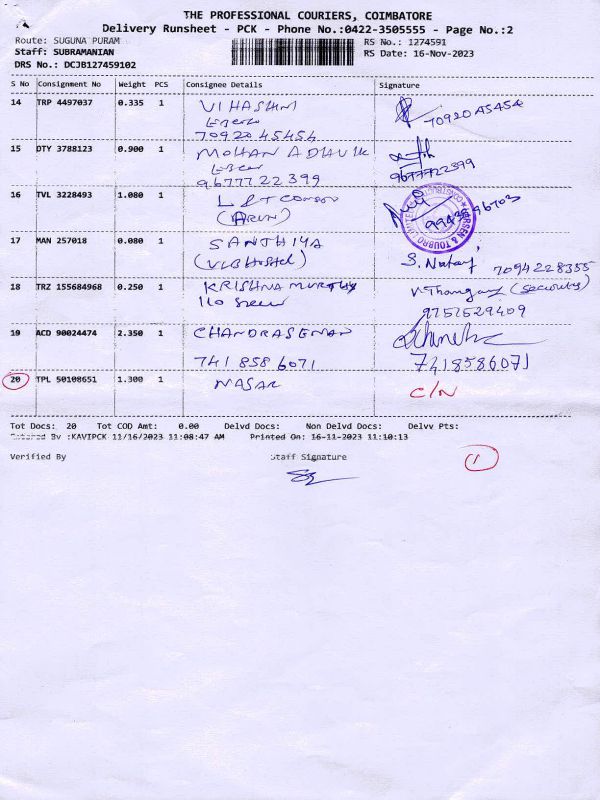 THE PROFESSIONAL COURIERS, COIMBATORE
Delivery Runsheet - PCK - Phone No.:0422-3505555 - Page No.:2
Route: SUGUNA PURAM RS No.: 1274591
Staff: SUBRAMANIAN RS Date: 16-Nov-2023
DRS No.: DCJB127459102
S No Consignment No Weight PCS Consignee Details Signature
14 TRP 4497037 0.335 1 VIHASHNI
70920 45454 70920 45454
15 DTY 3788123 0.900 1 MOHAN ADHVIK
9677722399 9677722399
16 TVL 3228493 1.080 1 L&T
(ARUN)
17 MAN 257018 0.080 1 SANTHIYA
(VLB Hostel) S. 7094228355
18 TRZ 155684968 0.250 1 KRISHNA MURTHY V. (Security)
19 ACD 90024474 2.350 1 CHANDRASEKAR
741 858 6071 7418586071
20 TPL 50108651 1.300 1 NASAR C/N
Tot Docs: 20 Tot COD Amt: 0.00 Delvd Docs: Non Delvd Docs: Delvv Pts:
Entered By :KAVIPCK 11/16/2023 11:08:47 AM Printed On: 16-11-2023 11:10:13
Verified By Staff Signature
1